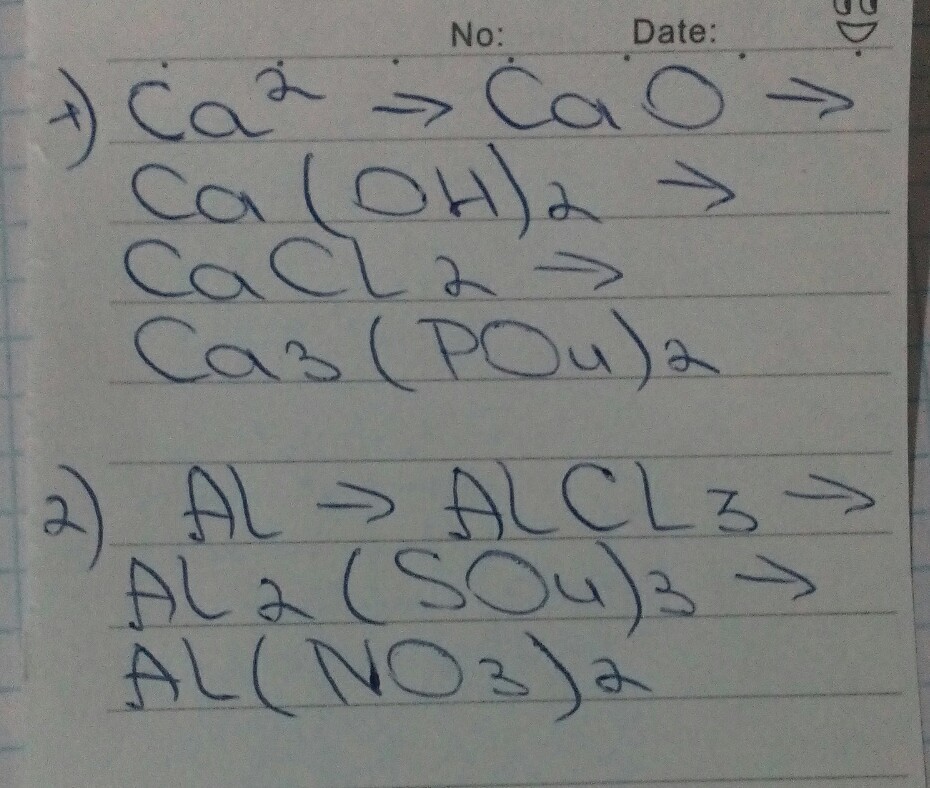 No: Date:
1) Ca² → CaO →
Ca(OH)2 →
CaCl2 →
Ca3(PO4)2
2) Al → AlCl3 →
Al2(SO4)3 →
Al(NO3)2